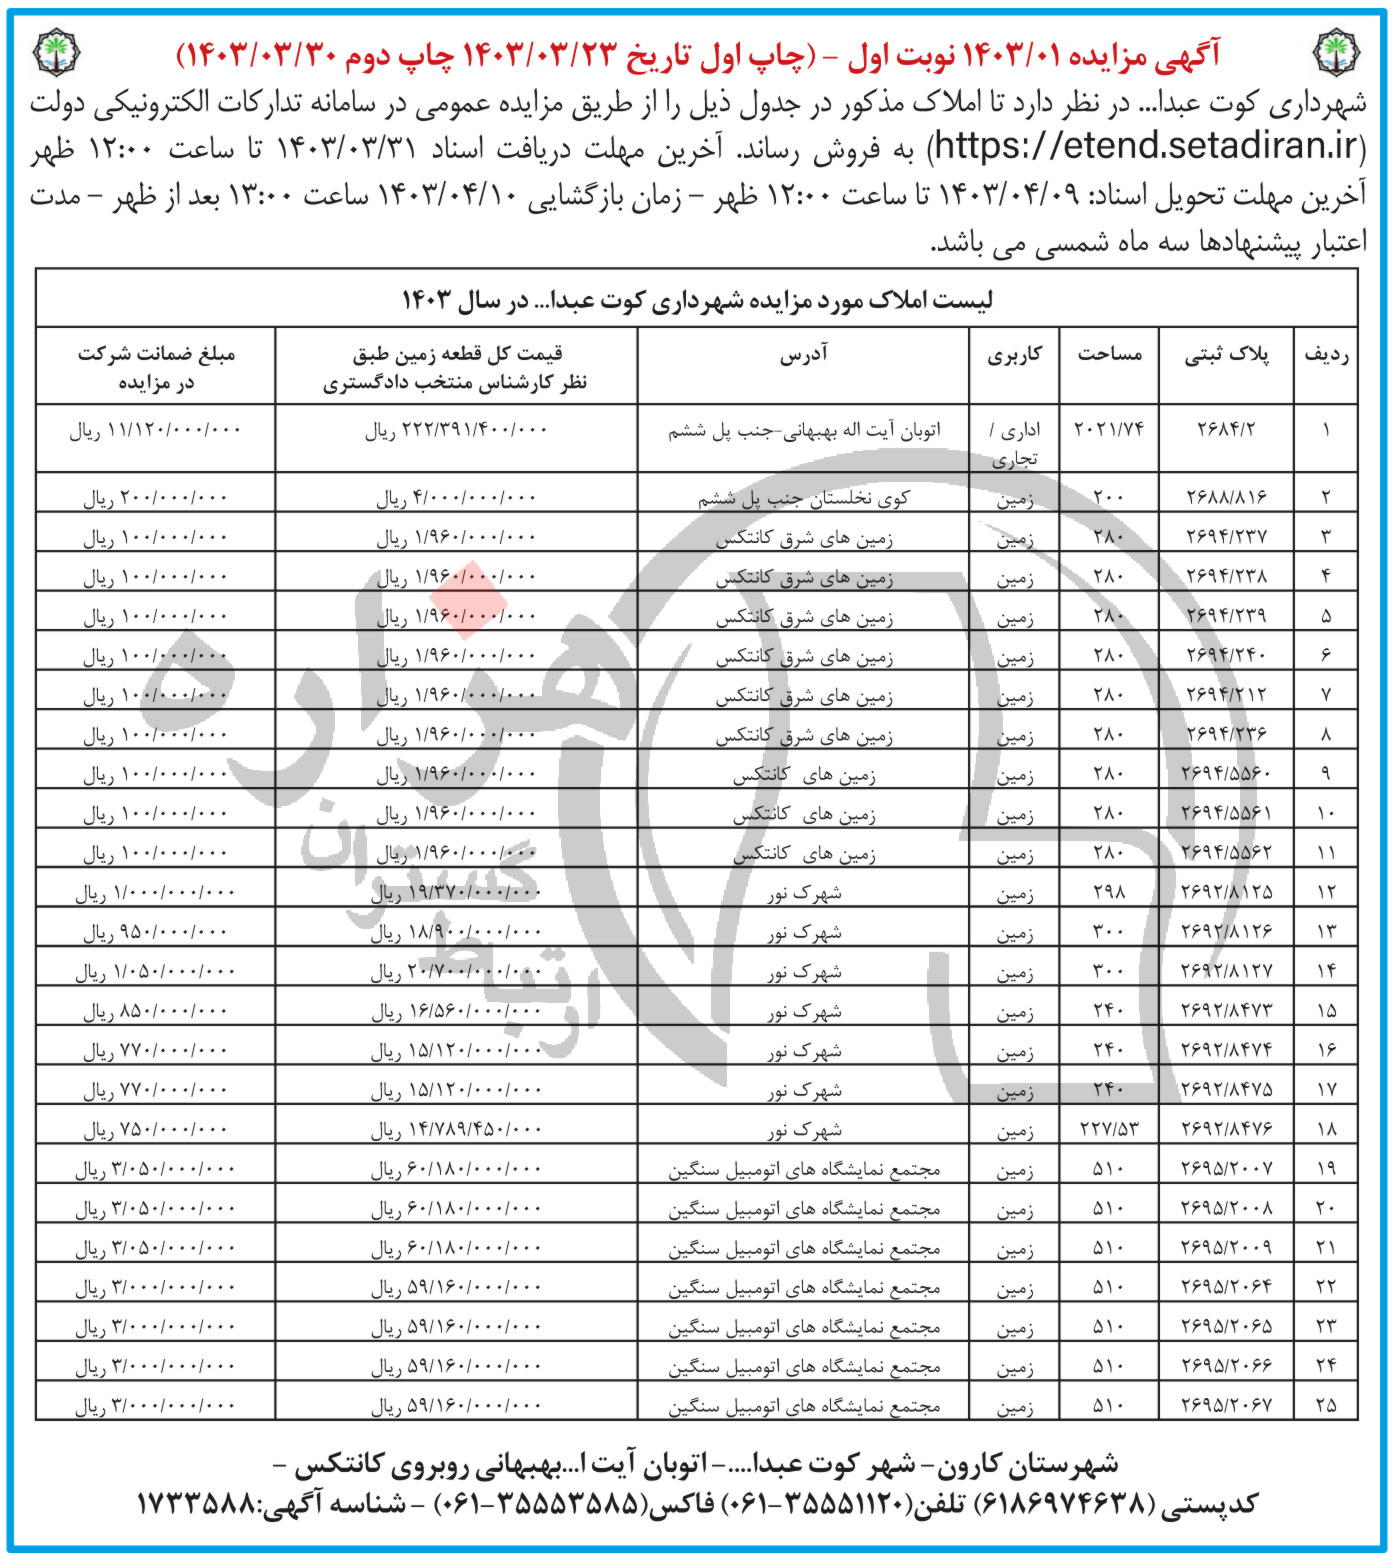 آگهی مزایده ۱۴۰۳/۰۱ نوبت اول - (چاپ اول تاریخ ۱۴۰۳/۰۳/۲۳ چاپ دوم ۱۴۰۳/۰۳/۳۰)
شهرداری کوت عبدا... در نظر دارد تا املاک مذکور در جدول ذیل را از طریق مزایده عمومی در سامانه تدارکات الکترونیکی دولت
(https://etend.setadiran.ir) به فروش رساند. آخرین مهلت دریافت اسناد ۱۴۰۳/۰۳/۳۱ تا ساعت ۱۲:۰۰ ظهر
آخرین مهلت تحویل اسناد: ۱۴۰۳/۰۴/۰۹ تا ساعت ۱۲:۰۰ ظهر - زمان بازگشایی ۱۴۰۳/۰۴/۱۰ ساعت ۱۳:۰۰ بعد از ظهر - مدت
اعتبار پیشنهادها سه ماه شمسی می باشد.
لیست املاک مورد مزایده شهرداری کوت عبدا... در سال ۱۴۰۳
ردیف پلاک ثبتی مساحت کاربری آدرس قیمت کل قطعه زمین طبق نظر کارشناس منتخب دادگستری مبلغ ضمانت شرکت در مزایده
۱ ۲۶۸۴/۲ ۲۰۲۱/۷۴ اداری / تجاری اتوبان آیت اله بهبهانی-جنب پل ششم ۲۲۲/۳۹۱/۴۰۰/۰۰۰ ریال ۱۱/۱۲۰/۰۰۰/۰۰۰ ریال
۲ ۲۶۸۸/۸۱۶ ۲۰۰ زمین کوی نخلستان جنب پل ششم ۴/۰۰۰/۰۰۰/۰۰۰ ریال ۲۰۰/۰۰۰/۰۰۰ ریال
۳ ۲۶۹۴/۲۳۷ ۲۸۰ زمین زمین های شرق کانتکس ۱/۹۶۰/۰۰۰/۰۰۰ ریال ۱۰۰/۰۰۰/۰۰۰ ریال
۴ ۲۶۹۴/۲۳۸ ۲۸۰ زمین زمین های شرق کانتکس ۱/۹۶۰/۰۰۰/۰۰۰ ریال ۱۰۰/۰۰۰/۰۰۰ ریال
۵ ۲۶۹۴/۲۳۹ ۲۸۰ زمین زمین های شرق کانتکس ۱/۹۶۰/۰۰۰/۰۰۰ ریال ۱۰۰/۰۰۰/۰۰۰ ریال
۶ ۲۶۹۴/۲۴۰ ۲۸۰ زمین زمین های شرق کانتکس ۱/۹۶۰/۰۰۰/۰۰۰ ریال ۱۰۰/۰۰۰/۰۰۰ ریال
۷ ۲۶۹۴/۲۱۲ ۲۸۰ زمین زمین های شرق کانتکس ۱/۹۶۰/۰۰۰/۰۰۰ ریال ۱۰۰/۰۰۰/۰۰۰ ریال
۸ ۲۶۹۴/۲۳۶ ۲۸۰ زمین زمین های شرق کانتکس ۱/۹۶۰/۰۰۰/۰۰۰ ریال ۱۰۰/۰۰۰/۰۰۰ ریال
۹ ۲۶۹۴/۵۵۶۰ ۲۸۰ زمین زمین های کانتکس ۱/۹۶۰/۰۰۰/۰۰۰ ریال ۱۰۰/۰۰۰/۰۰۰ ریال
۱۰ ۲۶۹۴/۵۵۶۱ ۲۸۰ زمین زمین های کانتکس ۱/۹۶۰/۰۰۰/۰۰۰ ریال ۱۰۰/۰۰۰/۰۰۰ ریال
۱۱ ۲۶۹۴/۵۵۶۲ ۲۸۰ زمین زمین های کانتکس ۱/۹۶۰/۰۰۰/۰۰۰ ریال ۱۰۰/۰۰۰/۰۰۰ ریال
۱۲ ۲۶۹۲/۸۱۲۵ ۲۹۸ زمین شهرک نور ۱۹/۳۷۰/۰۰۰/۰۰۰ ریال ۱/۰۰۰/۰۰۰/۰۰۰ ریال
۱۳ ۲۶۹۲/۸۱۲۶ ۳۰۰ زمین شهرک نور ۱۸/۹۰۰/۰۰۰/۰۰۰ ریال ۹۵۰/۰۰۰/۰۰۰ ریال
۱۴ ۲۶۹۲/۸۱۲۷ ۳۰۰ زمین شهرک نور ۲۰/۷۰۰/۰۰۰/۰۰۰ ریال ۱/۰۵۰/۰۰۰/۰۰۰ ریال
۱۵ ۲۶۹۲/۸۴۷۳ ۲۴۰ زمین شهرک نور ۱۶/۵۶۰/۰۰۰/۰۰۰ ریال ۸۵۰/۰۰۰/۰۰۰ ریال
۱۶ ۲۶۹۲/۸۴۷۴ ۲۴۰ زمین شهرک نور ۱۵/۱۲۰/۰۰۰/۰۰۰ ریال ۷۷۰/۰۰۰/۰۰۰ ریال
۱۷ ۲۶۹۲/۸۴۷۵ ۲۴۰ زمین شهرک نور ۱۵/۱۲۰/۰۰۰/۰۰۰ ریال ۷۷۰/۰۰۰/۰۰۰ ریال
۱۸ ۲۶۹۲/۸۴۷۶ ۲۲۷/۵۳ زمین شهرک نور ۱۴/۷۸۹/۴۵۰/۰۰۰ ریال ۷۵۰/۰۰۰/۰۰۰ ریال
۱۹ ۲۶۹۵/۲۰۰۷ ۵۱۰ زمین مجتمع نمایشگاه های اتومبیل سنگین ۶۰/۱۸۰/۰۰۰/۰۰۰ ریال ۳/۰۵۰/۰۰۰/۰۰۰ ریال
۲۰ ۲۶۹۵/۲۰۰۸ ۵۱۰ زمین مجتمع نمایشگاه های اتومبیل سنگین ۶۰/۱۸۰/۰۰۰/۰۰۰ ریال ۳/۰۵۰/۰۰۰/۰۰۰ ریال
۲۱ ۲۶۹۵/۲۰۰۹ ۵۱۰ زمین مجتمع نمایشگاه های اتومبیل سنگین ۶۰/۱۸۰/۰۰۰/۰۰۰ ریال ۳/۰۵۰/۰۰۰/۰۰۰ ریال
۲۲ ۲۶۹۵/۲۰۶۴ ۵۱۰ زمین مجتمع نمایشگاه های اتومبیل سنگین ۵۹/۱۶۰/۰۰۰/۰۰۰ ریال ۳/۰۰۰/۰۰۰/۰۰۰ ریال
۲۳ ۲۶۹۵/۲۰۶۵ ۵۱۰ زمین مجتمع نمایشگاه های اتومبیل سنگین ۵۹/۱۶۰/۰۰۰/۰۰۰ ریال ۳/۰۰۰/۰۰۰/۰۰۰ ریال
۲۴ ۲۶۹۵/۲۰۶۶ ۵۱۰ زمین مجتمع نمایشگاه های اتومبیل سنگین ۵۹/۱۶۰/۰۰۰/۰۰۰ ریال ۳/۰۰۰/۰۰۰/۰۰۰ ریال
۲۵ ۲۶۹۵/۲۰۶۷ ۵۱۰ زمین مجتمع نمایشگاه های اتومبیل سنگین ۵۹/۱۶۰/۰۰۰/۰۰۰ ریال ۳/۰۰۰/۰۰۰/۰۰۰ ریال
هزاره
گستران
ارتباط
شهرستان کارون- شهر کوت عبدا....- اتوبان آیت ا...بهبهانی روبروی کانتکس -
کدپستی (۶۱۸۶۹۷۴۶۳۸) تلفن(۳۵۵۵۱۱۲۰-۰۶۱) فاکس(۳۵۵۵۳۵۸۵-۰۶۱) - شناسه آگهی:۱۷۳۳۵۸۸